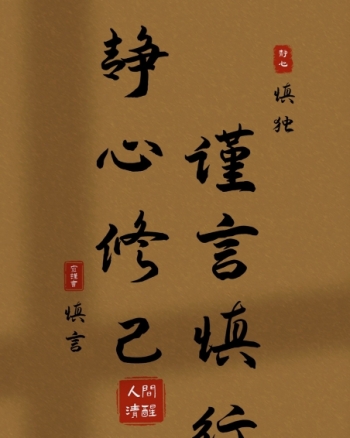 慎独
谨言慎行
静心修己
慎言
人間
清醒